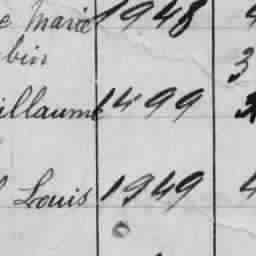 e Marie 1948 4
bin 3
illaume 1499
l Louis 1949 4